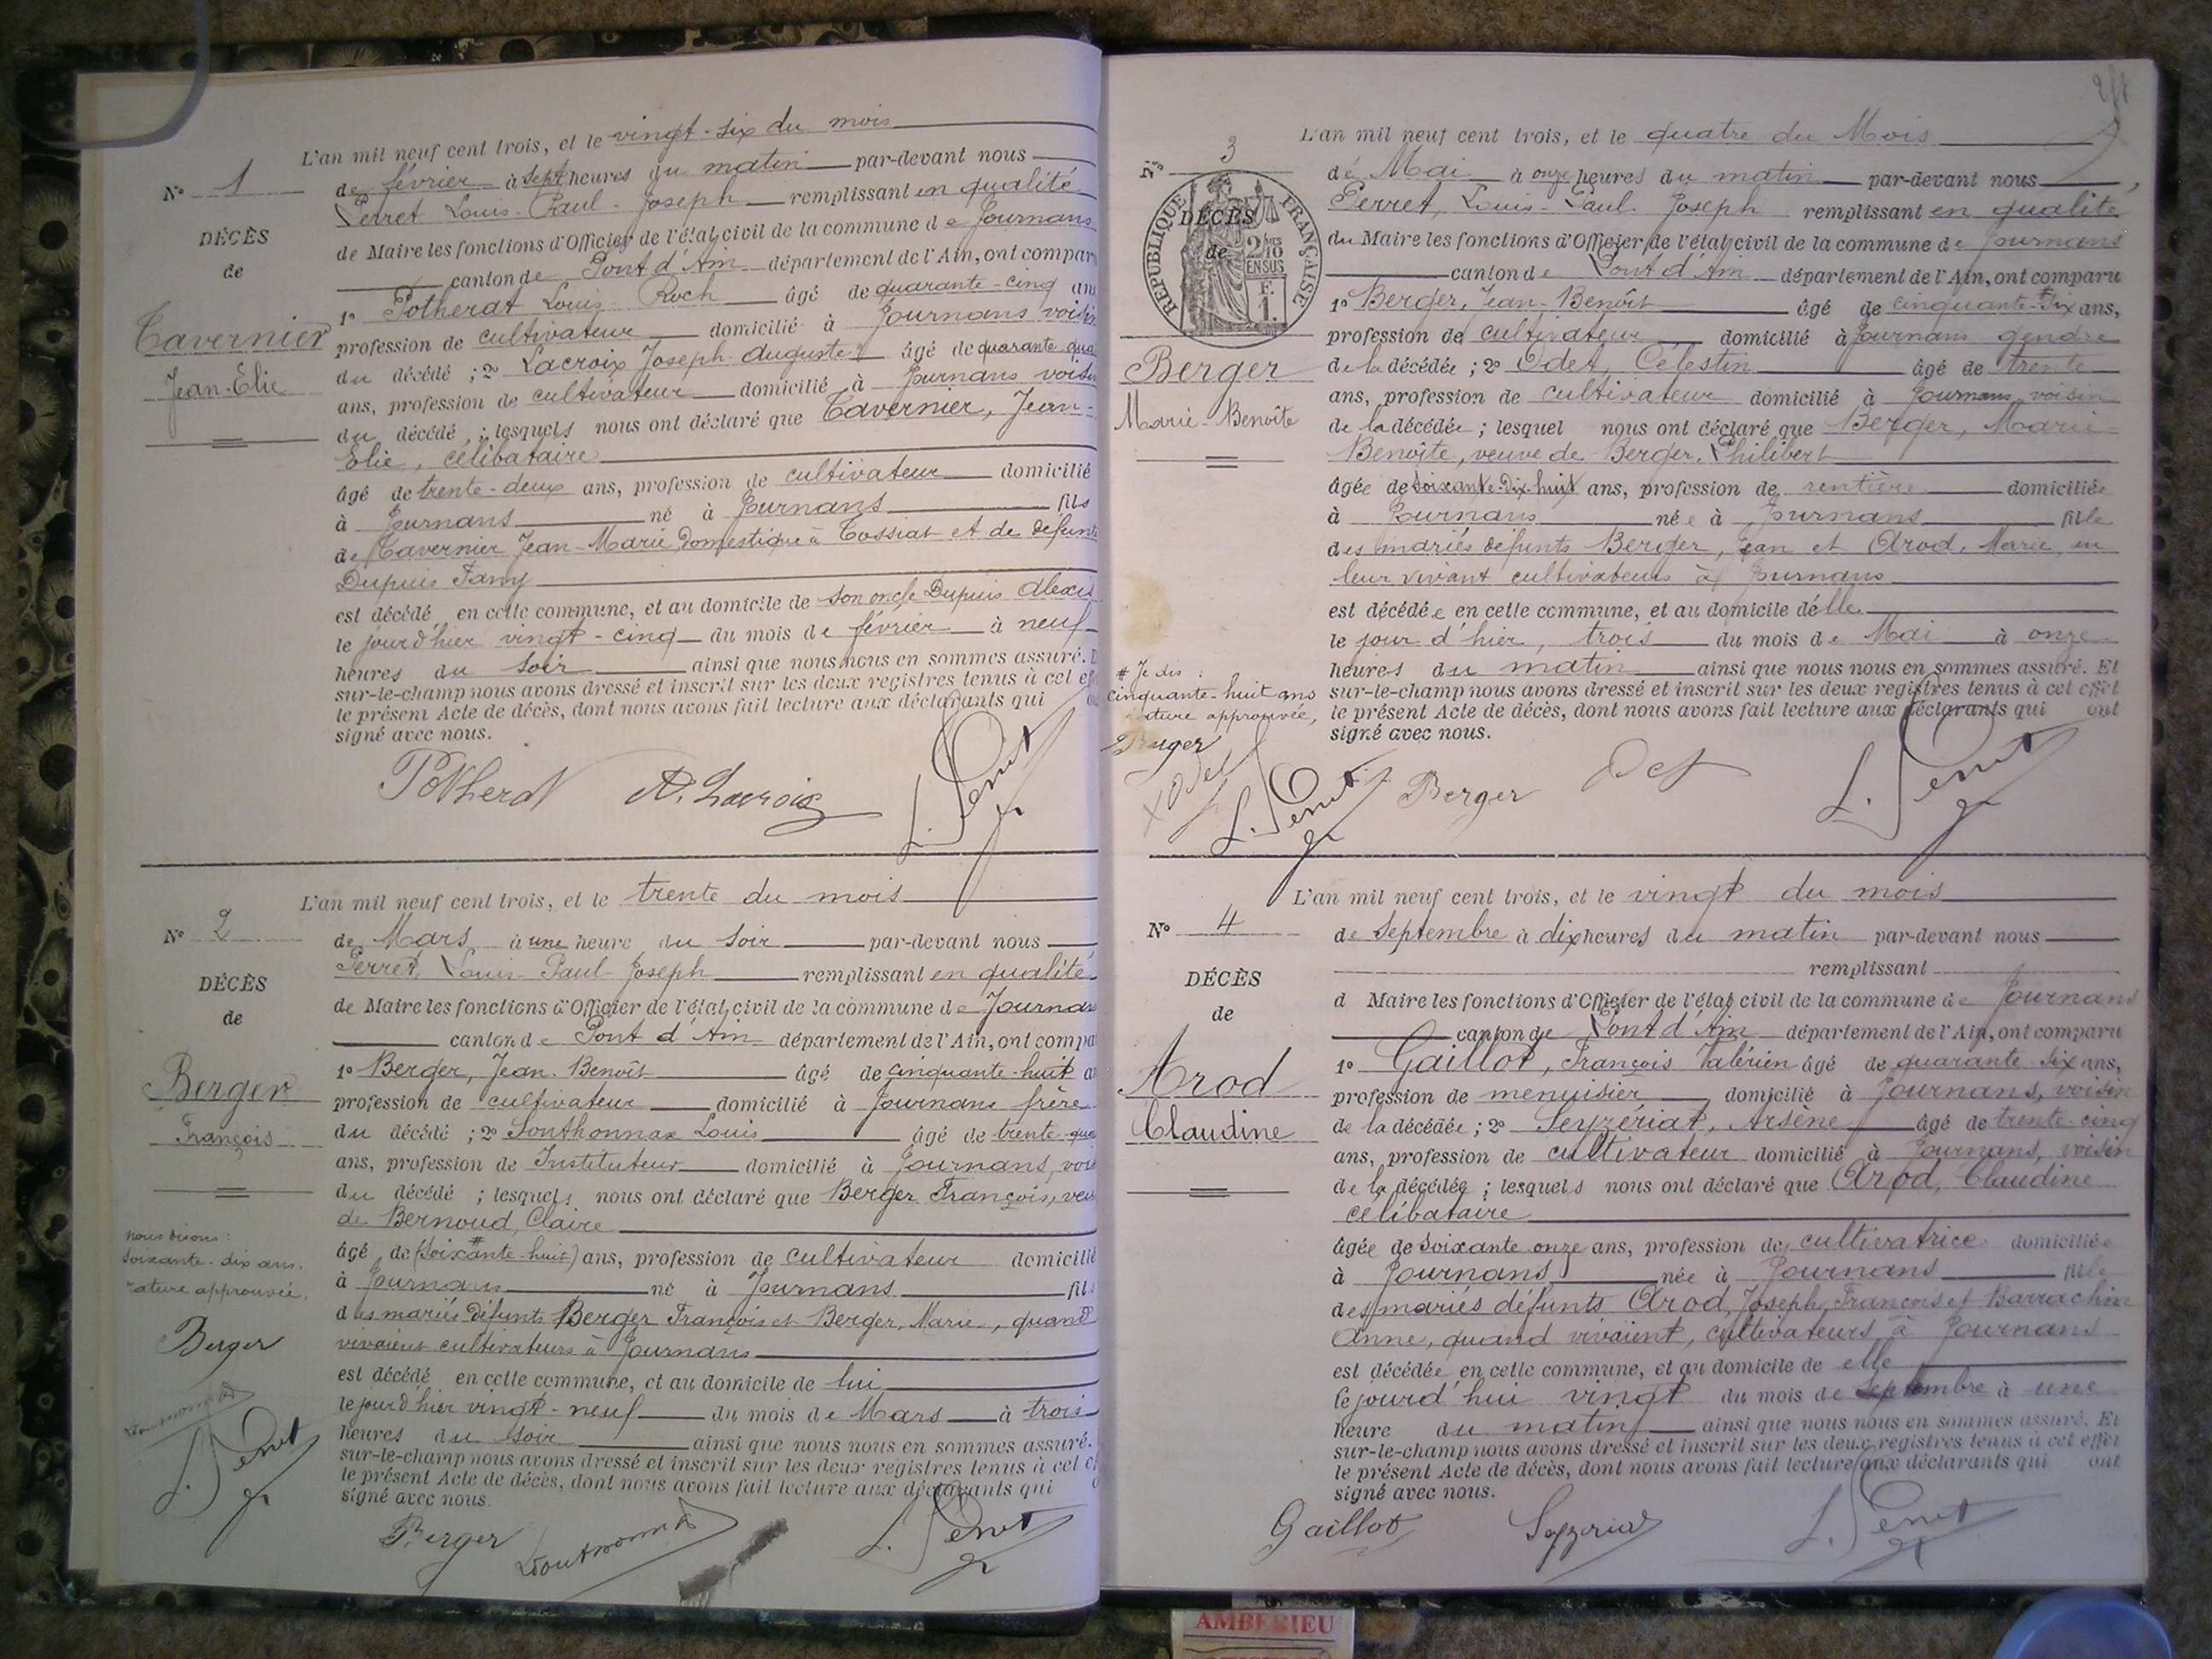 L'an mil neuf cent trois, et le vingt-six du mois
N° 1
de février à sept heures du matin par-devant nous
Perret Louis-Paul-Joseph remplissant en qualité
DÉCÈS
de
de Maire les fonctions d'Officier de l'état civil de la commune de Journans
canton de Pont d'Ain département de l'Ain, ont compar
1° Potherat Louis-Roch âgé de quarante-cinq ans
Tavernier
Jean-Elie
profession de cultivateur domicilié à Journans voisin
du décédé ; 2° Lacroix Joseph-Auguste âgé de quarante qua
ans, profession de cultivateur domicilié à Journans voisin
du décédé ; lesquels nous ont déclaré que Tavernier, Jean-
Elie, célibataire
âgé de trente-deux ans, profession de cultivateur domicilié
à Journans né à Journans fils
de Tavernier Jean-Marie domestique à Tossiat et de défunte
Dupuis Fany
est décédé en cette commune, et au domicile de son oncle Dupuis Alexis
le jour d'hier vingt-cinq du mois de février à neuf
heures du soir ainsi que nous nous en sommes assuré.
sur-le-champ nous avons dressé et inscrit sur les deux registres tenus à cet ef
le présent Acte de décès, dont nous avons fait lecture aux déclarants qui
signé avec nous.
Potherat A. Lacroix L. Perret
L'an mil neuf cent trois, et le trente du mois
N° 2
de Mars à une heure du soir par-devant nous
Perret, Louis-Paul-Joseph remplissant en qualité
DÉCÈS
de
de Maire les fonctions d'Officier de l'état civil de la commune de Journans
canton de Pont d'Ain département de l'Ain, ont compa
Berger
François
1° Berger, Jean-Benoît âgé de cinquante-huit a
profession de cultivateur domicilié à Journans frère
du décédé ; 2° Sonthonnax Louis âgé de trente-qua
ans, profession de Instituteur domicilié à Journans, vois
du décédé ; lesquels nous ont déclaré que Berger François, veu
de Bernoud, Claire
nous disons :
soixante-dix ans.
rature approuvée.
Berger
Sonthonnax
L. Perret
âgé de (soixante-huit) ans, profession de cultivateur domicilié
à Journans né à Journans fils
des mariés défunts Berger François et Berger, Marie, quand
vivaient cultivateurs à Journans
est décédé en cette commune, et au domicile de lui
le jour d'hier vingt-neuf du mois de Mars à trois
heures du soir ainsi que nous nous en sommes assuré.
sur-le-champ nous avons dressé et inscrit sur les deux registres tenus à cet ef
le présent Acte de décès, dont nous avons fait lecture aux déclarants qui
signé avec nous.
Berger Sonthonnax L. Perret
L'an mil neuf cent trois, et le quatre du Mois
N° 3
de Mai à onze heures du matin par-devant nous
Perret, Louis-Paul-Joseph remplissant en qualité
RÉPUBLIQUE FRANÇAISE
DÉCÈS
de
2/10
EN SUS
F.
1.
du Maire les fonctions d'Officier de l'état civil de la commune de Journans
canton de Pont d'Ain département de l'Ain, ont comparu
1° Berger, Jean-Benoît âgé de cinquante-six ans,
profession de cultivateur domicilié à Journans gendre
Berger
Marie-Benoîte
de la décédée ; 2° Odet, Célestin âgé de trente
ans, profession de cultivateur domicilié à Journans voisin
de la décédée ; lesquel nous ont déclaré que Berger, Marie
Benoîte, veuve de Berger, Philibert
âgée de soixante-dix-huit ans, profession de rentière domiciliée
à Journans née à Journans fille
des mariés défunts Berger, Jean et Arod, Marie, en
leur vivant cultivateurs à Journans
est décédée en cette commune, et au domicile d'elle
le jour d'hier, trois du mois de Mai à onze
# Je dis :
cinquante-huit ans
rature approuvée,
Berger
Odet
L. Perret
heures du matin ainsi que nous nous en sommes assuré. Et
sur-le-champ nous avons dressé et inscrit sur les deux registres tenus à cet effet
le présent Acte de décès, dont nous avons fait lecture aux déclarants qui ont
signé avec nous.
Berger Odet L. Perret
L'an mil neuf cent trois, et le vingt du mois
N° 4
de Septembre à dix heures du matin par-devant nous
remplissant
DÉCÈS
de
d Maire les fonctions d'Officier de l'état civil de la commune de Journans
canton de Pont d'Ain département de l'Ain, ont comparu
Arod
Claudine
1° Gaillot, François Valérien âgé de quarante six ans,
profession de menuisier domicilié à Journans, voisin
de la décédée ; 2° Seyzériat, Arsène âgé de trente-cinq
ans, profession de cultivateur domicilié à Journans, voisin
de la décédée ; lesquels nous ont déclaré que Arod, Claudine
célibataire
âgée de soixante onze ans, profession de cultivatrice domiciliée
à Journans née à Journans fille
des mariés défunts Arod, Joseph, François et Barrachin
Anne, quand vivaient, cultivateurs à Journans
est décédée en cette commune, et au domicile de elle
le jourd'hui vingt du mois de Septembre à une
heure du matin ainsi que nous nous en sommes assuré. Et
sur-le-champ nous avons dressé et inscrit sur les deux registres tenus à cet effet
le présent Acte de décès, dont nous avons fait lecture aux déclarants qui ont
signé avec nous.
Gaillot Seyzeriat L. Perret
AMBERIEU